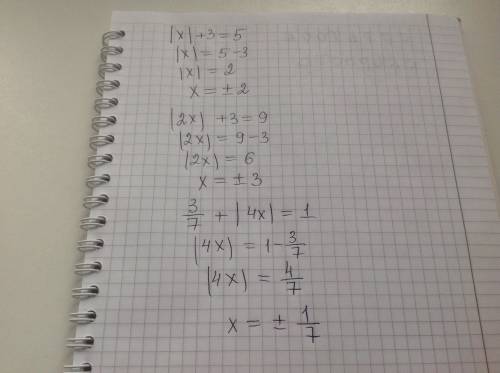 |x| + 3 = 5
|x| = 5 - 3
|x| = 2
x = ± 2
|2x| + 3 = 9
|2x| = 9 - 3
|2x| = 6
x = ± 3
3/7 + |4x| = 1
|4x| = 1 - 3/7
|4x| = 4/7
x = ± 1/7